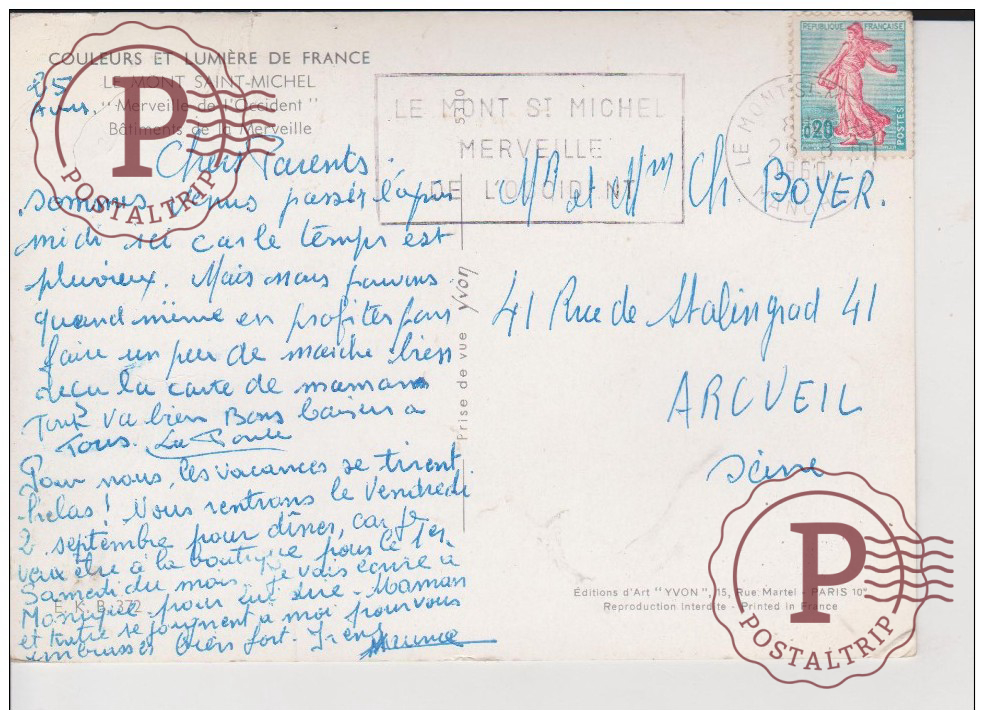 COULEURS ET LUMIÈRE DE FRANCE
LE MONT SAINT-MICHEL
"Merveille de l'Occident"
Bâtiments de la Merveille
25
P
POSTALTRIP
LE MONT ST MICHEL
MERVEILLE
DE L'OCCIDENT
RÉPUBLIQUE FRANÇAISE
0,20
POSTES
LE MONT ST
1960
MANCHE
Chers Parents
Sommes depuis passés l'après
midi ici car le temps est
pluvieux. Mais nous pouvons
quand même en profiter pour
faire un peu de marche. bien
reçu la carte de maman
Tout va bien Bons baisers a
Tous.
Pour nous, les vacances se tirent
hélas! Nous rentrons le Vendredi
2 septembre pour dîner, car je
veux être à la boutique pour le 1er
Samedi du mois. Je vais écrire à
Monique pour lui dire. Maman
et se joignent à moi pour vous
embrasser bien fort.
E. K. B. 372
5300
Prise de vue Yvon
Mr et Mme Ch. BOYER.
41 Rue de Stalingrad 41
ARCUEIL
Seine
Éditions d'Art "YVON", 15, Rue Martel - PARIS 10e
Reproduction Interdite - Printed in France
P
POSTALTRIP